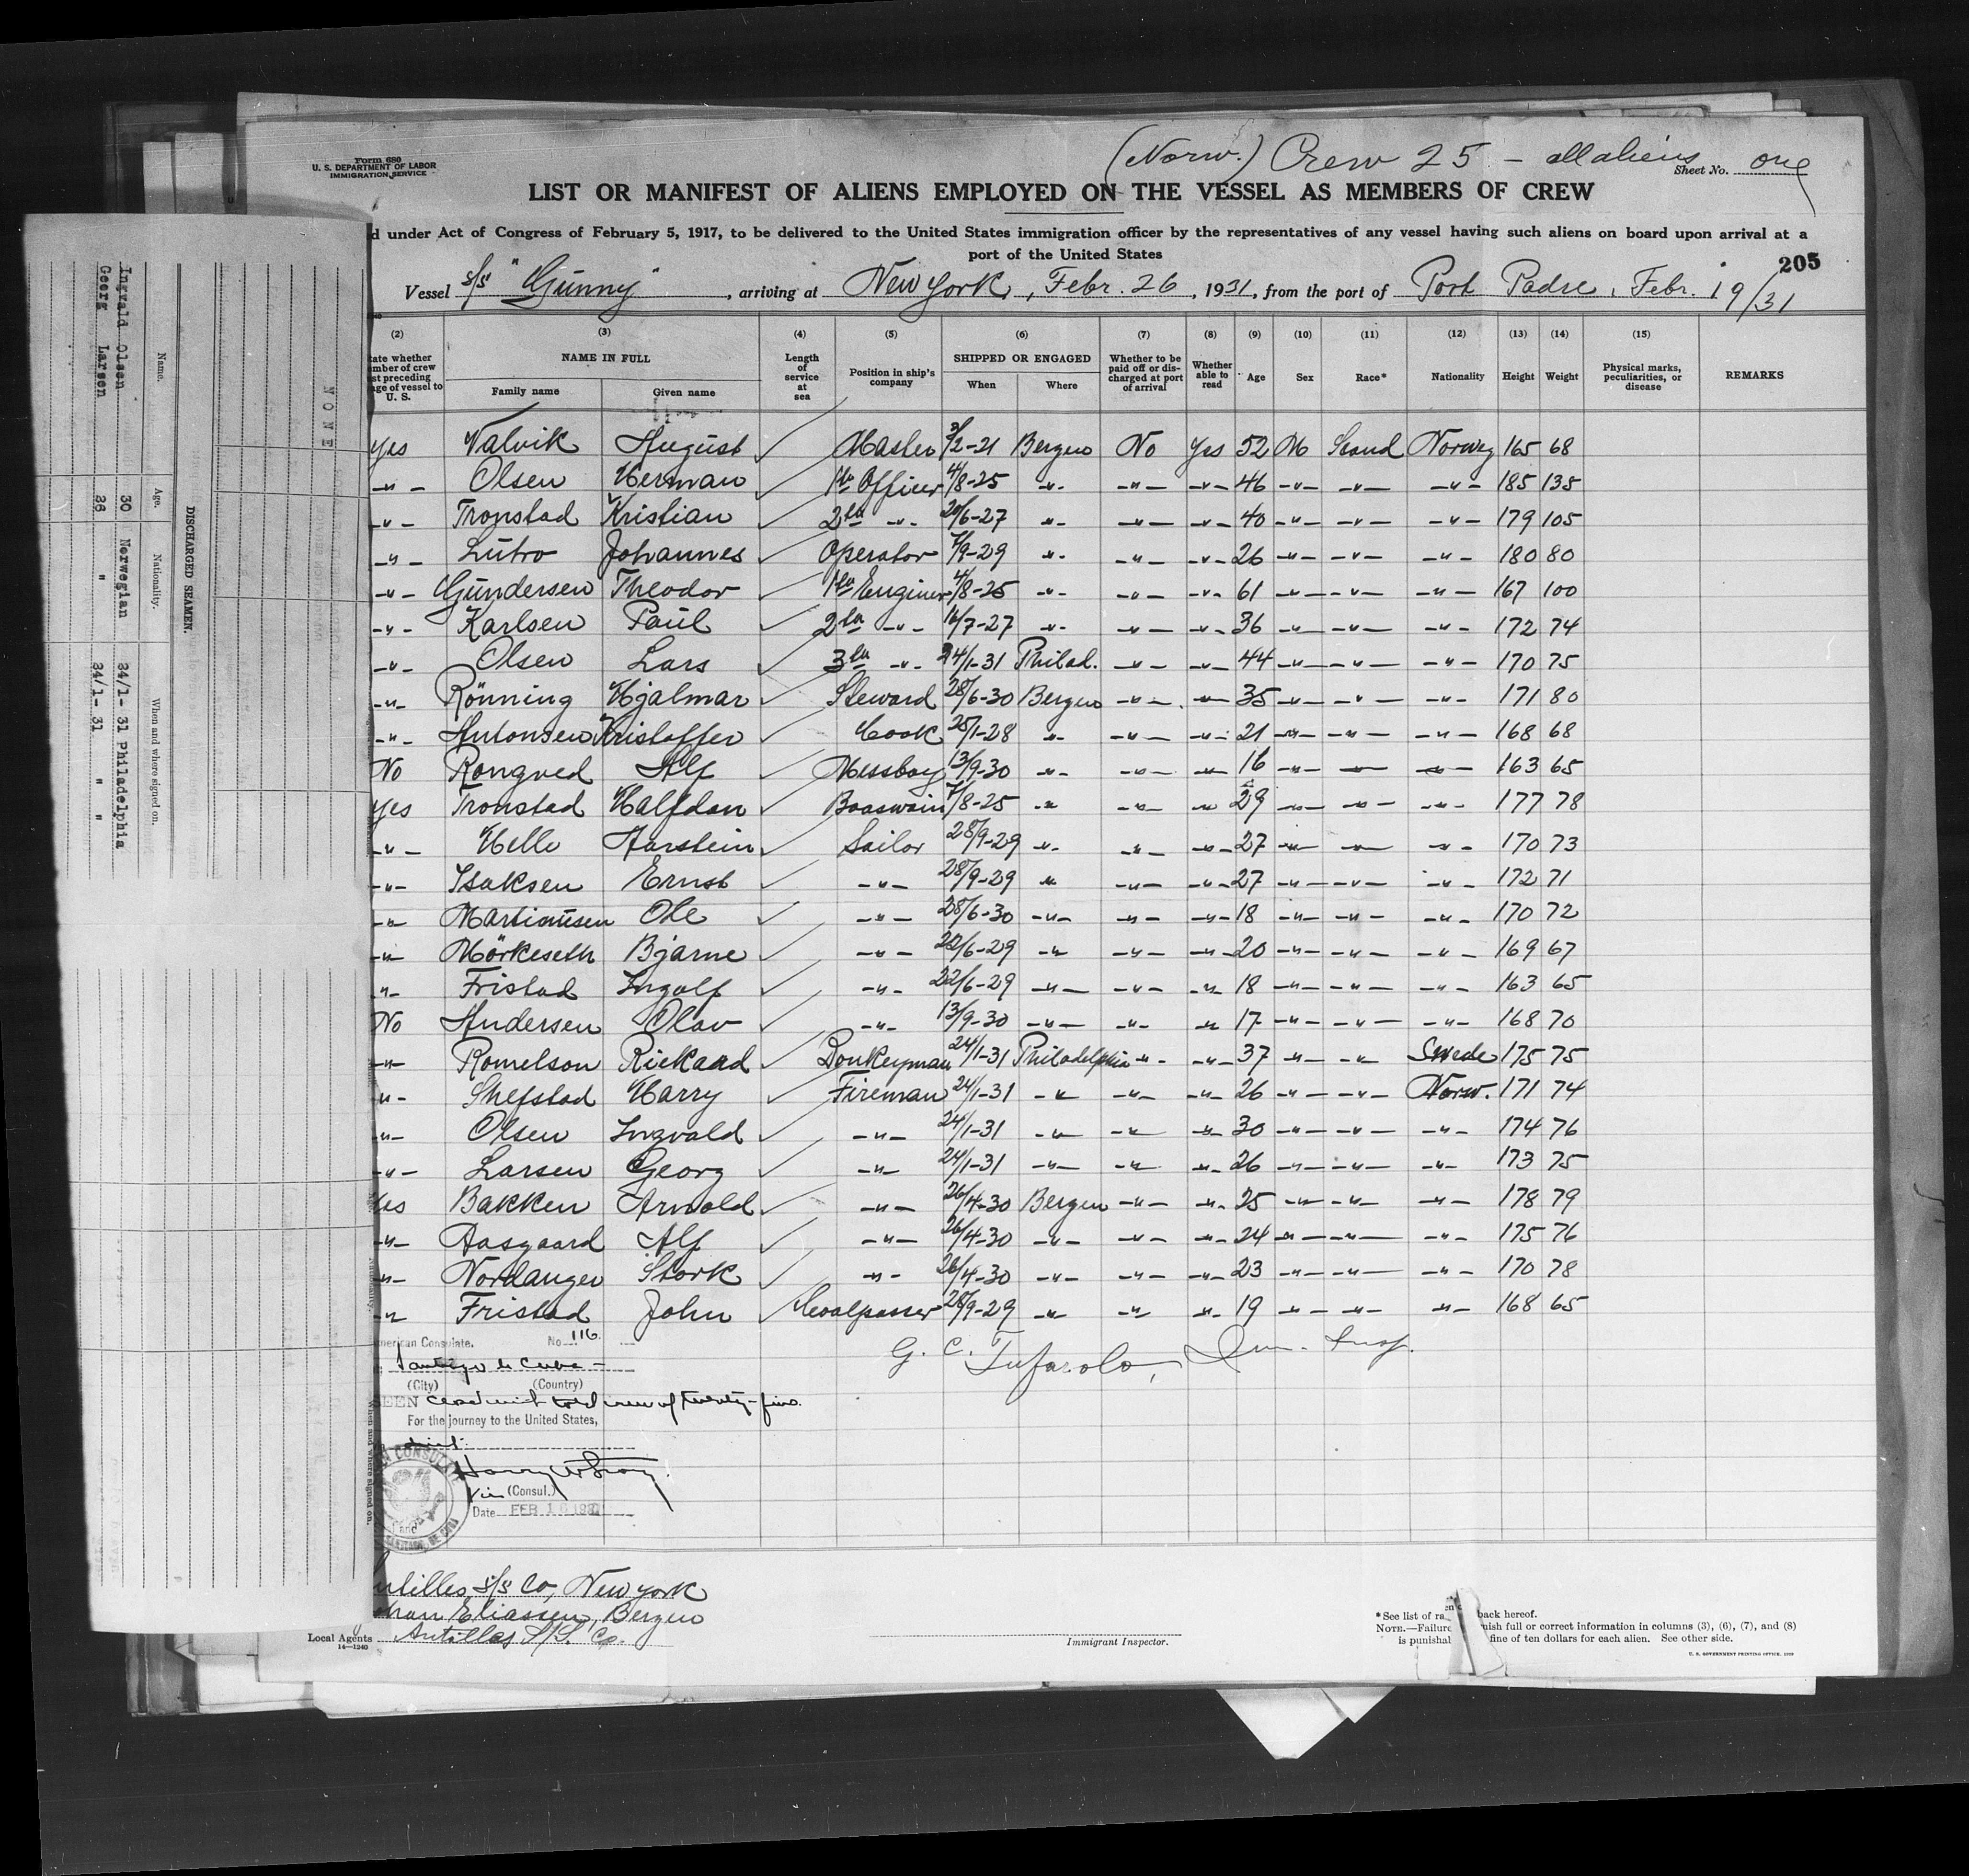 Form 680
U. S. DEPARTMENT OF LABOR
IMMIGRATION SERVICE
(Norw.) Crew 25 – all aliens
Sheet No. one
LIST OR MANIFEST OF ALIENS EMPLOYED ON THE VESSEL AS MEMBERS OF CREW
d under Act of Congress of February 5, 1917, to be delivered to the United States immigration officer by the representatives of any vessel having such aliens on board upon arrival at a
port of the United States
205
Vessel s/s "Gunny", arriving at New York, Febr. 26, 1931, from the port of Port Padre, Febr. 19/31
(2) (3) (4) (5) (6) (7) (8) (9) (10) (11) (12) (13) (14) (15)
tate whether mber of crew st preceding age of vessel to U. S. NAME IN FULL Family name Given name Length of service at sea Position in ship's company SHIPPED OR ENGAGED When Where Whether to be paid off or discharged at port of arrival Whether able to read Age Sex Race* Nationality Height Weight Physical marks, peculiarities, or disease REMARKS
Yes Valvik August ✓ Master 3/2-21 Bergen No Yes 52 M Scand Norweg 165 68
-"- Olsen Herman ✓ 1st Officer 4/8-25 -"- -"- -"- 46 -"- -"- -"- 185 135
-"- Tronstad Kristian ✓ 2nd -"- 20/6-27 -"- -"- -"- 40 -"- -"- -"- 179 105
-"- Lutro Johannes ✓ Operator 7/9-29 -"- -"- -"- 26 -"- -"- -"- 180 80
-"- Gundersen Theodor ✓ 1st Enginer 4/8-25 -"- -"- -"- 61 -"- -"- -"- 167 100
-"- Karlsen Paul ✓ 2nd -"- 16/7-27 -"- -"- -"- 36 -"- -"- -"- 172 74
-"- Olsen Lars ✓ 3rd -"- 24/1-31 Philad. -"- -"- 44 -"- -"- -"- 170 75
-"- Rönning Hjalmar ✓ Steward 28/6-30 Bergen -"- -"- 35 -"- -"- -"- 171 80
-"- Antonsen Kristoffer ✓ Cook 25/1-28 -"- -"- -"- 21 -"- -"- -"- 168 68
No Rongved Alf ✓ Messboy 13/9-30 -"- -"- -"- 16 -"- -"- -"- 163 65
Yes Tronstad Halfdan ✓ Boaswain 7/8-25 -"- -"- -"- 29 -"- -"- -"- 177 78
-"- Helle Harstein ✓ Sailor 28/9-29 -"- -"- -"- 27 -"- -"- -"- 170 73
-"- Isaksen Ernst ✓ -"- 28/9-29 -"- -"- -"- 27 -"- -"- -"- 172 71
-"- Martinusen Ole ✓ -"- 28/6-30 -"- -"- -"- 18 -"- -"- -"- 170 72
-"- Mörkeseth Bjarne ✓ -"- 22/6-29 -"- -"- -"- 20 -"- -"- -"- 169 67
-"- Fristad Ingolf ✓ -"- 22/6-29 -"- -"- -"- 18 -"- -"- -"- 163 65
No Andersen Olav ✓ -"- 13/9-30 -"- -"- -"- 17 -"- -"- -"- 168 70
-"- Romelson Rickaad ✓ Donkeyman 24/1-31 Philadelphia -"- -"- 37 -"- -"- Swede 175 75
-"- Shefstad Harry ✓ Fireman 24/1-31 -"- -"- -"- 26 -"- -"- Norw. 171 74
-"- Olsen Ingvald ✓ -"- 24/1-31 -"- -"- -"- 30 -"- -"- -"- 174 76
-"- Larsen Georg ✓ -"- 24/1-31 -"- -"- -"- 26 -"- -"- -"- 173 75
Yes Bakken Arnold ✓ -"- 26/4-30 Bergen -"- -"- 25 -"- -"- -"- 178 79
-"- Aasgaard Alf ✓ -"- 26/4-30 -"- -"- -"- 24 -"- -"- -"- 175 76
-"- Nordanger Stork ✓ -"- 26/4-30 -"- -"- -"- 23 -"- -"- -"- 170 78
-"- Fristad John ✓ Coalpasser 28/9-29 -"- -"- -"- 19 -"- -"- -"- 168 65
merican Consulate. No. 116.
G. C. Tufarolo, Im. Insp.
Santiago de Cuba –
(City) (Country)
SEEN total crew of twenty-five.
For the journey to the United States,
Harry W Story.
Vice (Consul.)
Date FEB 16 1931
ntilles s/s Co, New York
ohan Eliassen, Bergen
Local Agents Antilles S/S. Co.
14—1240
Immigrant Inspector.
*See list of ra back hereof.
NOTE.—Failure nish full or correct information in columns (3), (6), (7), and (8)
is punishab fine of ten dollars for each alien. See other side.
U. S. GOVERNMENT PRINTING OFFICE
DISCHARGED SEAMEN.
Name. Age. Nationality. When and where signed on.
Ingvald Olsen 30 Norwegian 24/1- 31 Philadelphia
Georg Larsen 26 " 24/1- 31 "
NONE